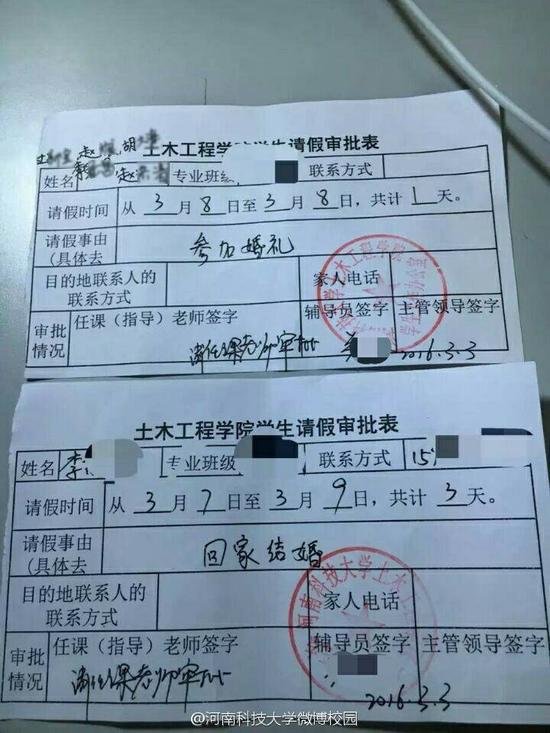 赵 胡
土木工程学院学生请假审批表
姓名 赵 专业班级 联系方式
请假时间 从 3 月 8 日至 3 月 8 日，共计 1 天。
请假事由 参加婚礼
(具体去
目的地联系人的 家人电话
联系方式
审批 任课（指导）老师签字 辅导员签字 主管领导签字
情况 请任课老师审批 2016.3.3
土木工程学院学生请假审批表
姓名 李 专业班级 联系方式 15
请假时间 从 3 月 7 日至 3 月 9 日，共计 3 天。
请假事由 回家结婚
(具体去
目的地联系人的 家人电话
联系方式
河南科技大学土木
审批 任课（指导）老师签字 辅导员签字 主管领导签字
情况 请任课老师审批 2016.3.3
@河南科技大学微博校园